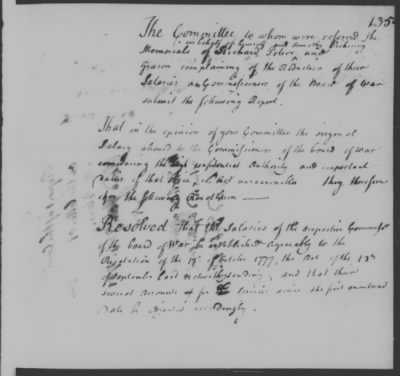 435
The Committee to whom were referred the
in behalf of himself and Timothy Pickering
Memorials of Richard Peters, and
complaining of the Reduction of their
Salaries as Commissioners of the Board of War
submit the following Report.
That in the opinion of your Committee the original
Salary allowed to the Commissioners of the board of war
considering the confidential Authority and important
duties of that is not unreasonable They therefore
the following Resolution
Resolved That the Salaries of the respective Commissrs
of the board of War be established agreeably to the
Regulation of the of October 1777, the Act of the 13th
of last notwithstanding; and that their
several Accounts for Service since the first mentioned
Date be adjusted accordingly.